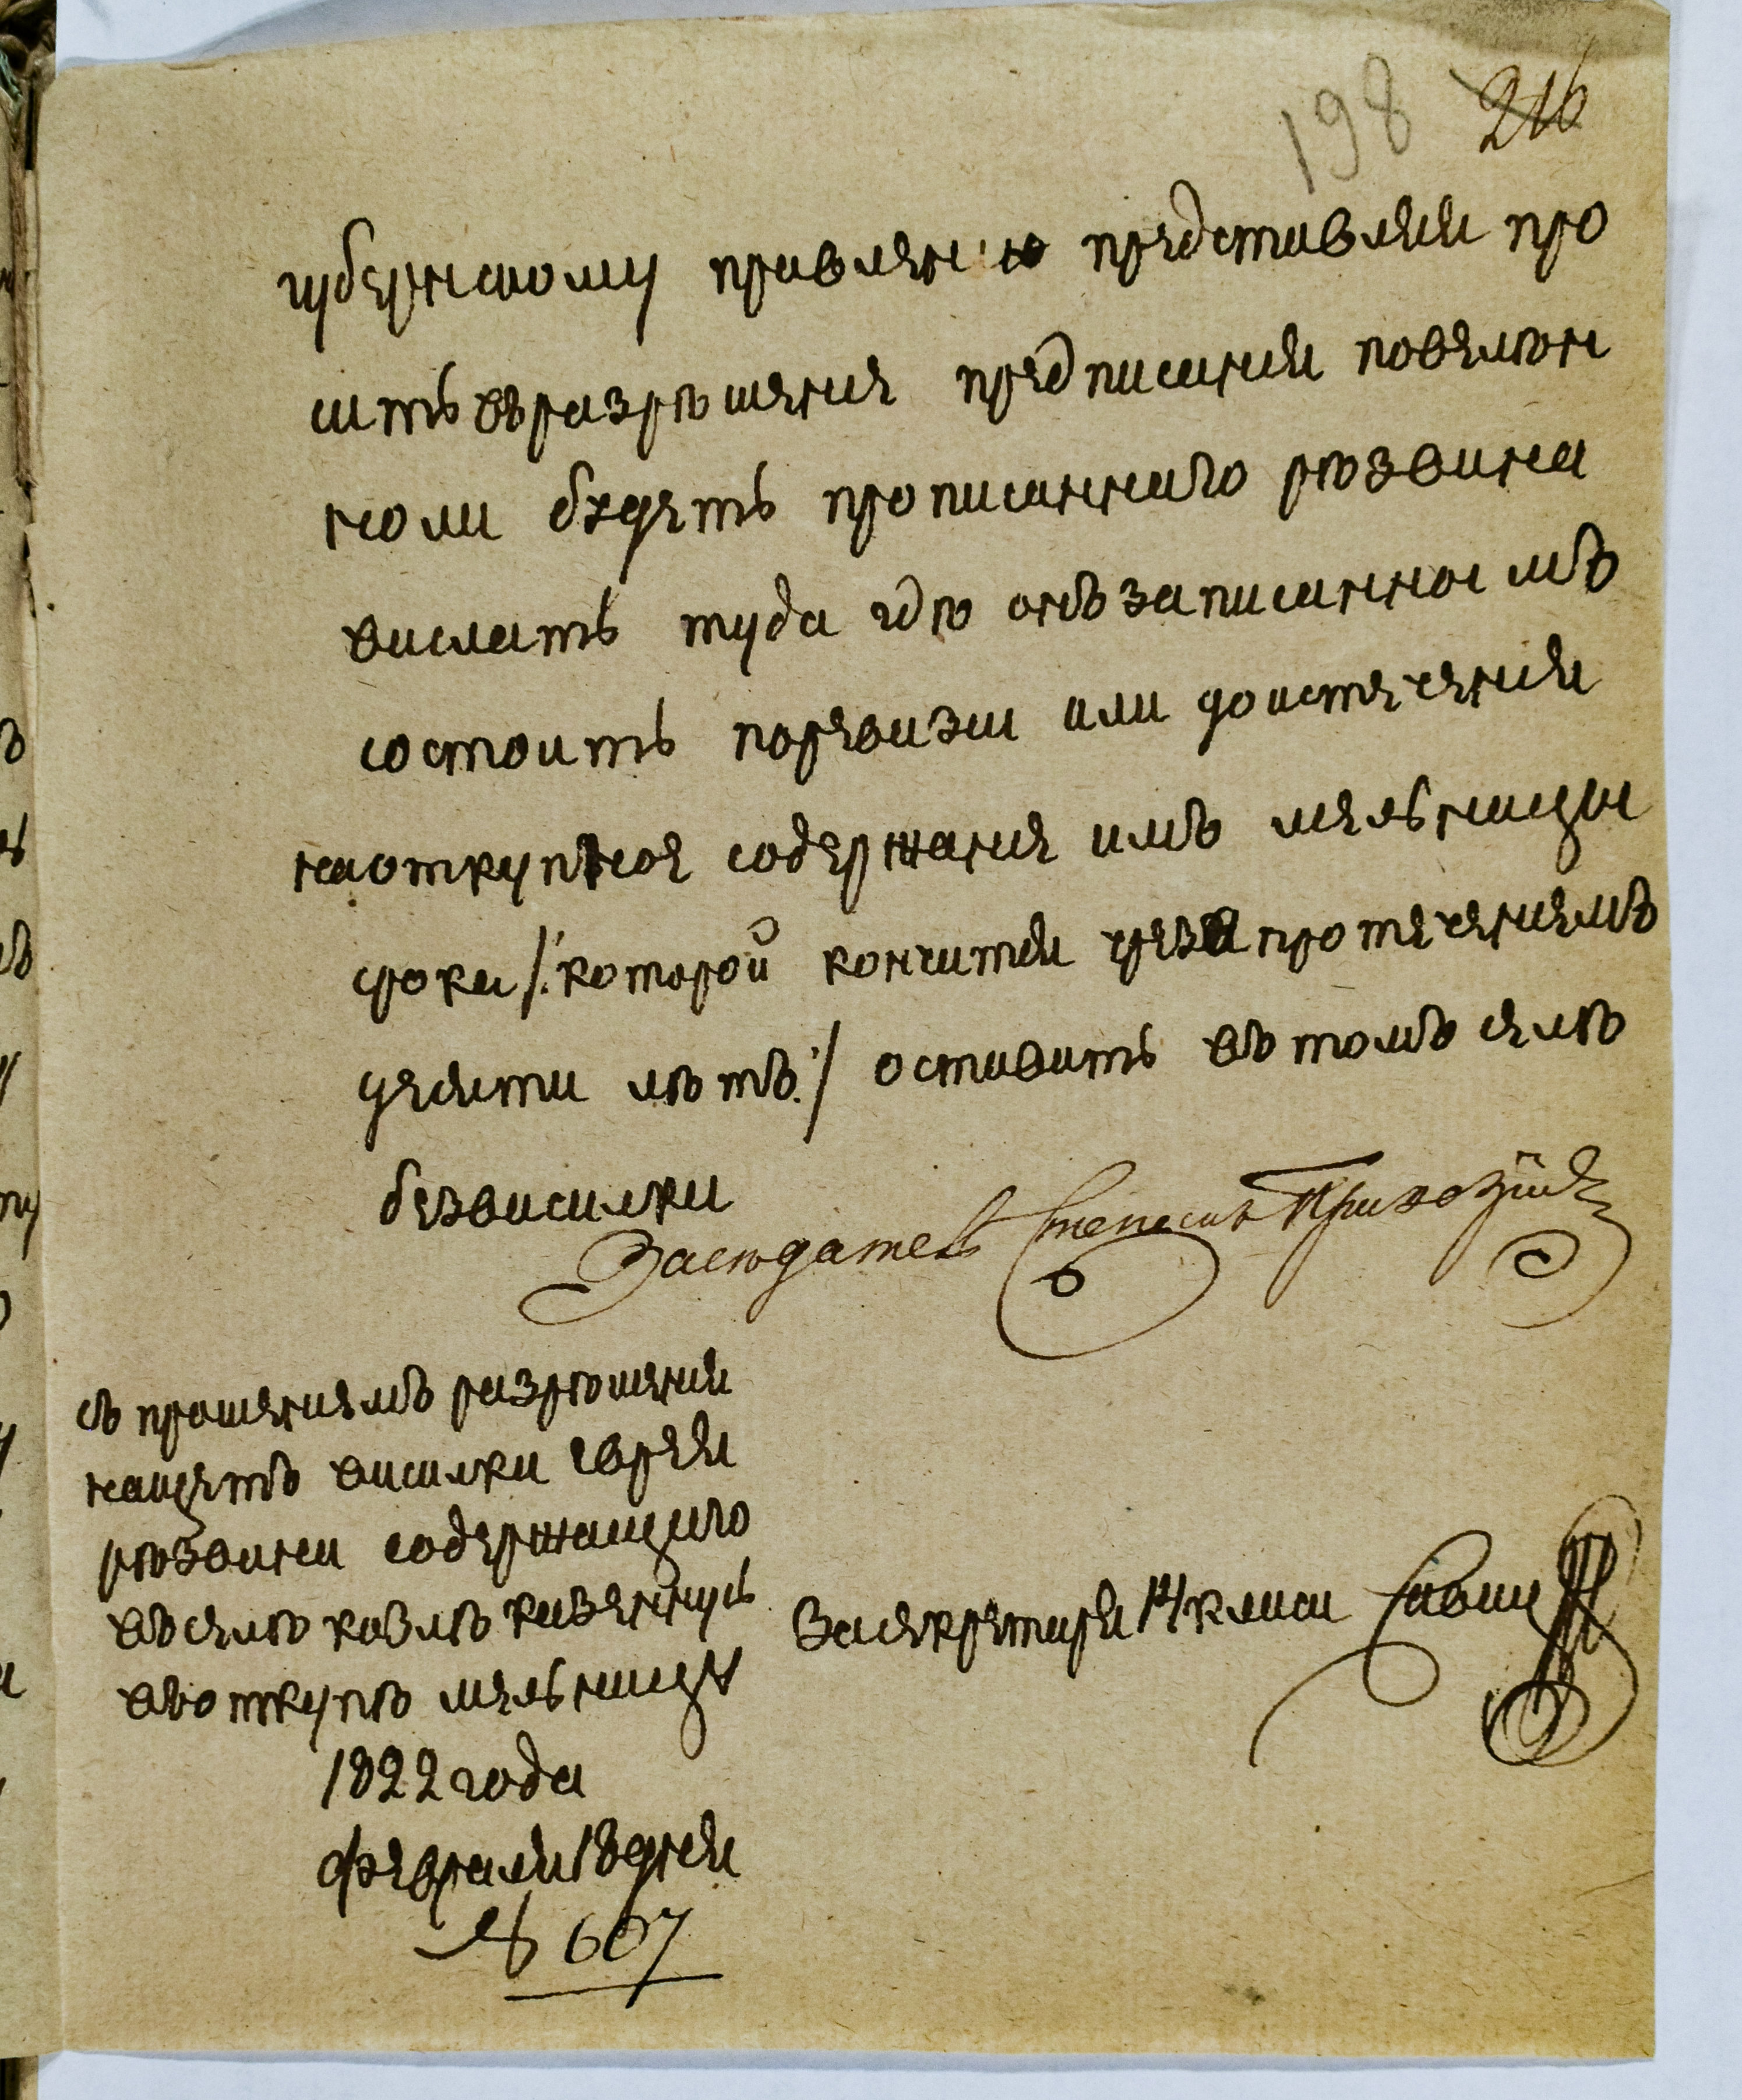 198 216
губернскому правлению представляя про
сить въ разрѣшение предписания повелѣн
ноли будетъ прописанного рѣзвина
вислать туда гдѣ онъ записанноемъ
состоитъ поревизии или доистечения
наоткупное содержание имъ мельницы
срока /: которой кончится чрезъ протечениемъ
десяти лѣтъ :/ оставить въ томъ селѣ
безвисилки
Заседатель Степанъ
съ прошениемъ разрѣшения
нащетъ висилки еврея
рѣзвина содержащего
въ селѣ козлѣ казенную
въ откупѣ мельницу
1822 года
февраля 18 дня
№ 607
За секретаря 14 класа Савиц